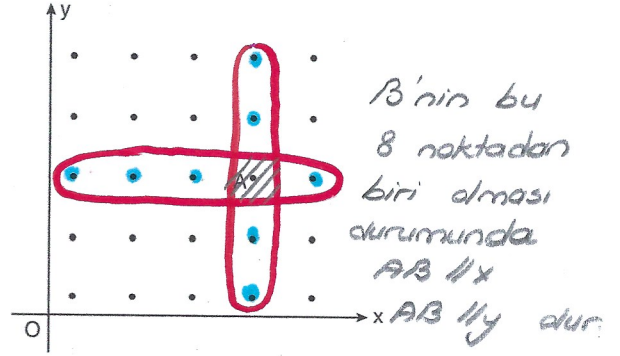 y
B'nin bu
8 noktadan
biri olması
durumunda
AB // x
AB // y dur.
A
x
O